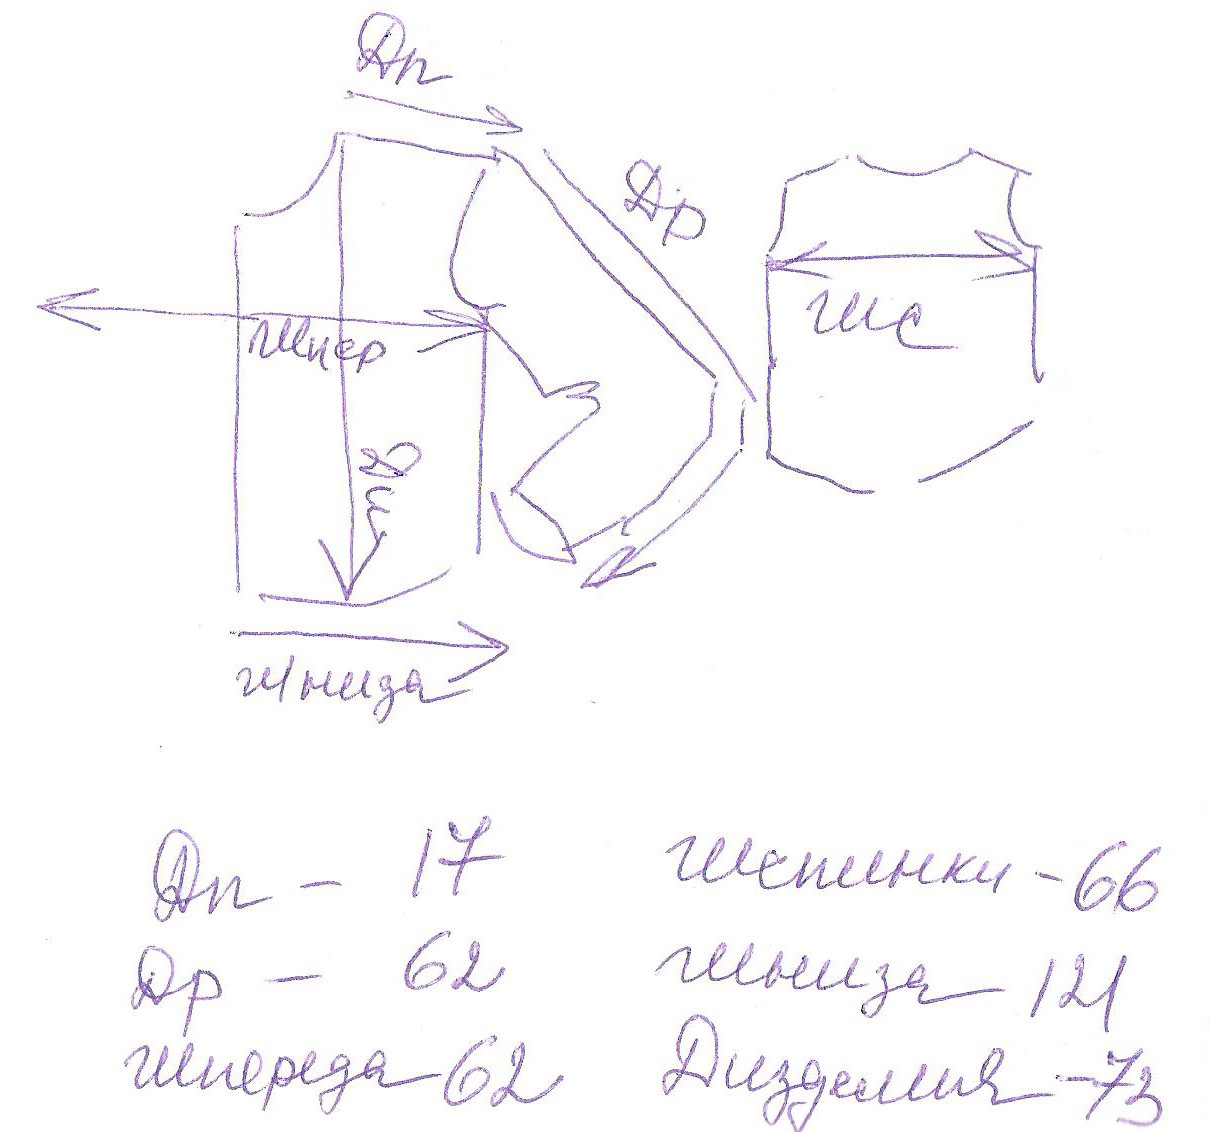 Дп
Др
Шпер
Шс
Ди
Шниза
Дп – 17
Шспинки – 66
Др – 62
Шниза – 121
Шпереда – 62
Дизделия – 73